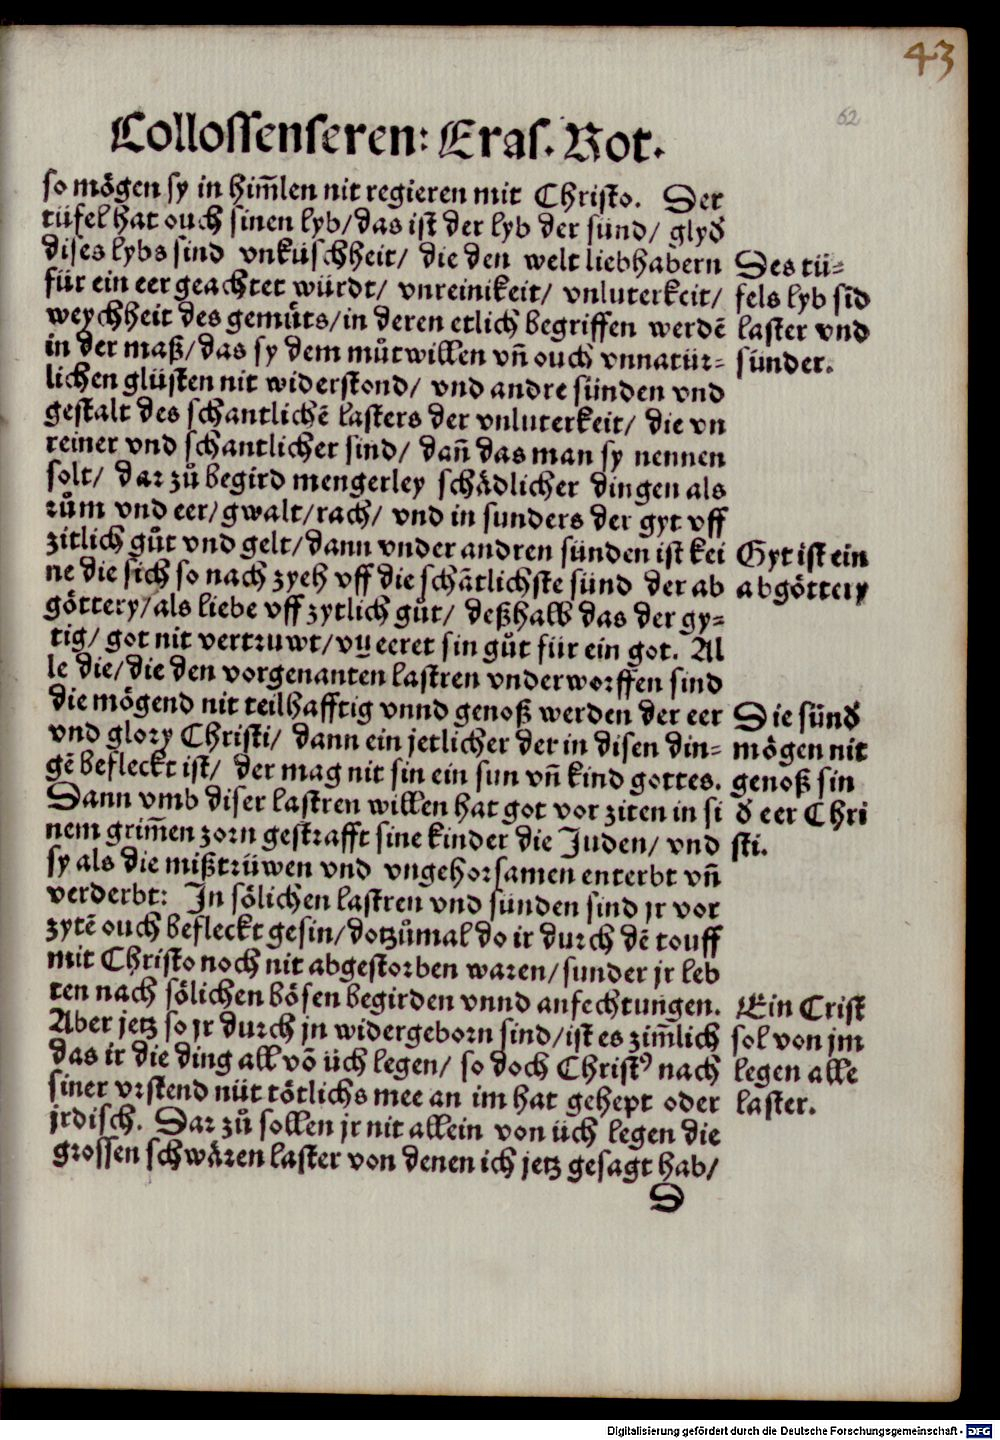 43
62
Collossenseren: Eras. Rot.
so mögen sy in him̄len nit regieren mit Christo. Der
tüfel hat ouch sinen lyb/das ist der lyb der sünd/ glyd
dises lybs sind vnküschheit/ die den welt liebhabern
für ein eer geachtet würdt/ vnreinikeit/ vnluterkeit/
weychheit des gemuͤts/in deren etlich begriffen werdē
in der maß/das sy dem muͦtwillen vn̄ ouch vnnatür⸗
lichen glüsten nit widerstond/ vnd andre sünden vnd
gestalt des schantlichē lasters der vnluterkeit/ die vn
reiner vnd schantlicher sind/ dan̄ das man sy nennen
solt/ dar zuͦ begird mengerley schådlicher dingen als
ruͦm vnd eer/gwalt/rach/ vnd in sunders der gyt vff
zitlich guͦt vnd gelt/dann vnder andren sünden ist kei
ne die sich so nach zyeh vff die schātlichste sünd der ab
göttery/als liebe vff zytlich guͦt/ deßhalb das der gy⸗
tig/ got nit vertruwt/vn̄ eeret sin guͦt für ein got. Al
le die/die den vorgenanten lastren vnderworffen sind
die mögend nit teilhafftig vnnd genoß werden der eer
vnd glory Christi/ dann ein jetlicher der in disen din⸗
gē befleckt ist/ der mag nit sin ein sun vn̄ kind gottes.
Dann vmb diser lastren willen hat got vor ziten in si
nem grim̄en zorn gestrafft sine kinder die Juden/ vnd
sy als die mißtrüwen vnd vngehorsamen enterbt vn̄
verderbt: In sölichen lastren vnd sünden sind jr vor
zytē ouch befleckt gesin/dotzuͦmal do ir durch dē touff
mit Christo noch nit abgestorben waren/sunder jr leb
ten nach sölichen bösen begirden vnnd anfechtungen.
Aber jetz so jr durch jn widergeborn sind/ist es zim̄lich
das ir die ding all vō üch legen/ so doch Christꝰ nach
siner vrstend nüt tötlichs mee an im hat gehept oder
jrdisch. Dar zuͦ sollen jr nit allein von üch legen die
grossen schwåren laster von denen ich jetz gesagt hab/
D
Des tü⸗
fels lyb sīd
laster vnd
sünder.
Gyt ist ein
abgöttery
Die sünd
mögen nit
genoß sin
d eer Chri
sti.
Ein Crist
sol von jm
legen alle
laster.
Digitalisierung gefördert durch die Deutsche Forschungsgemeinschaft - DFG